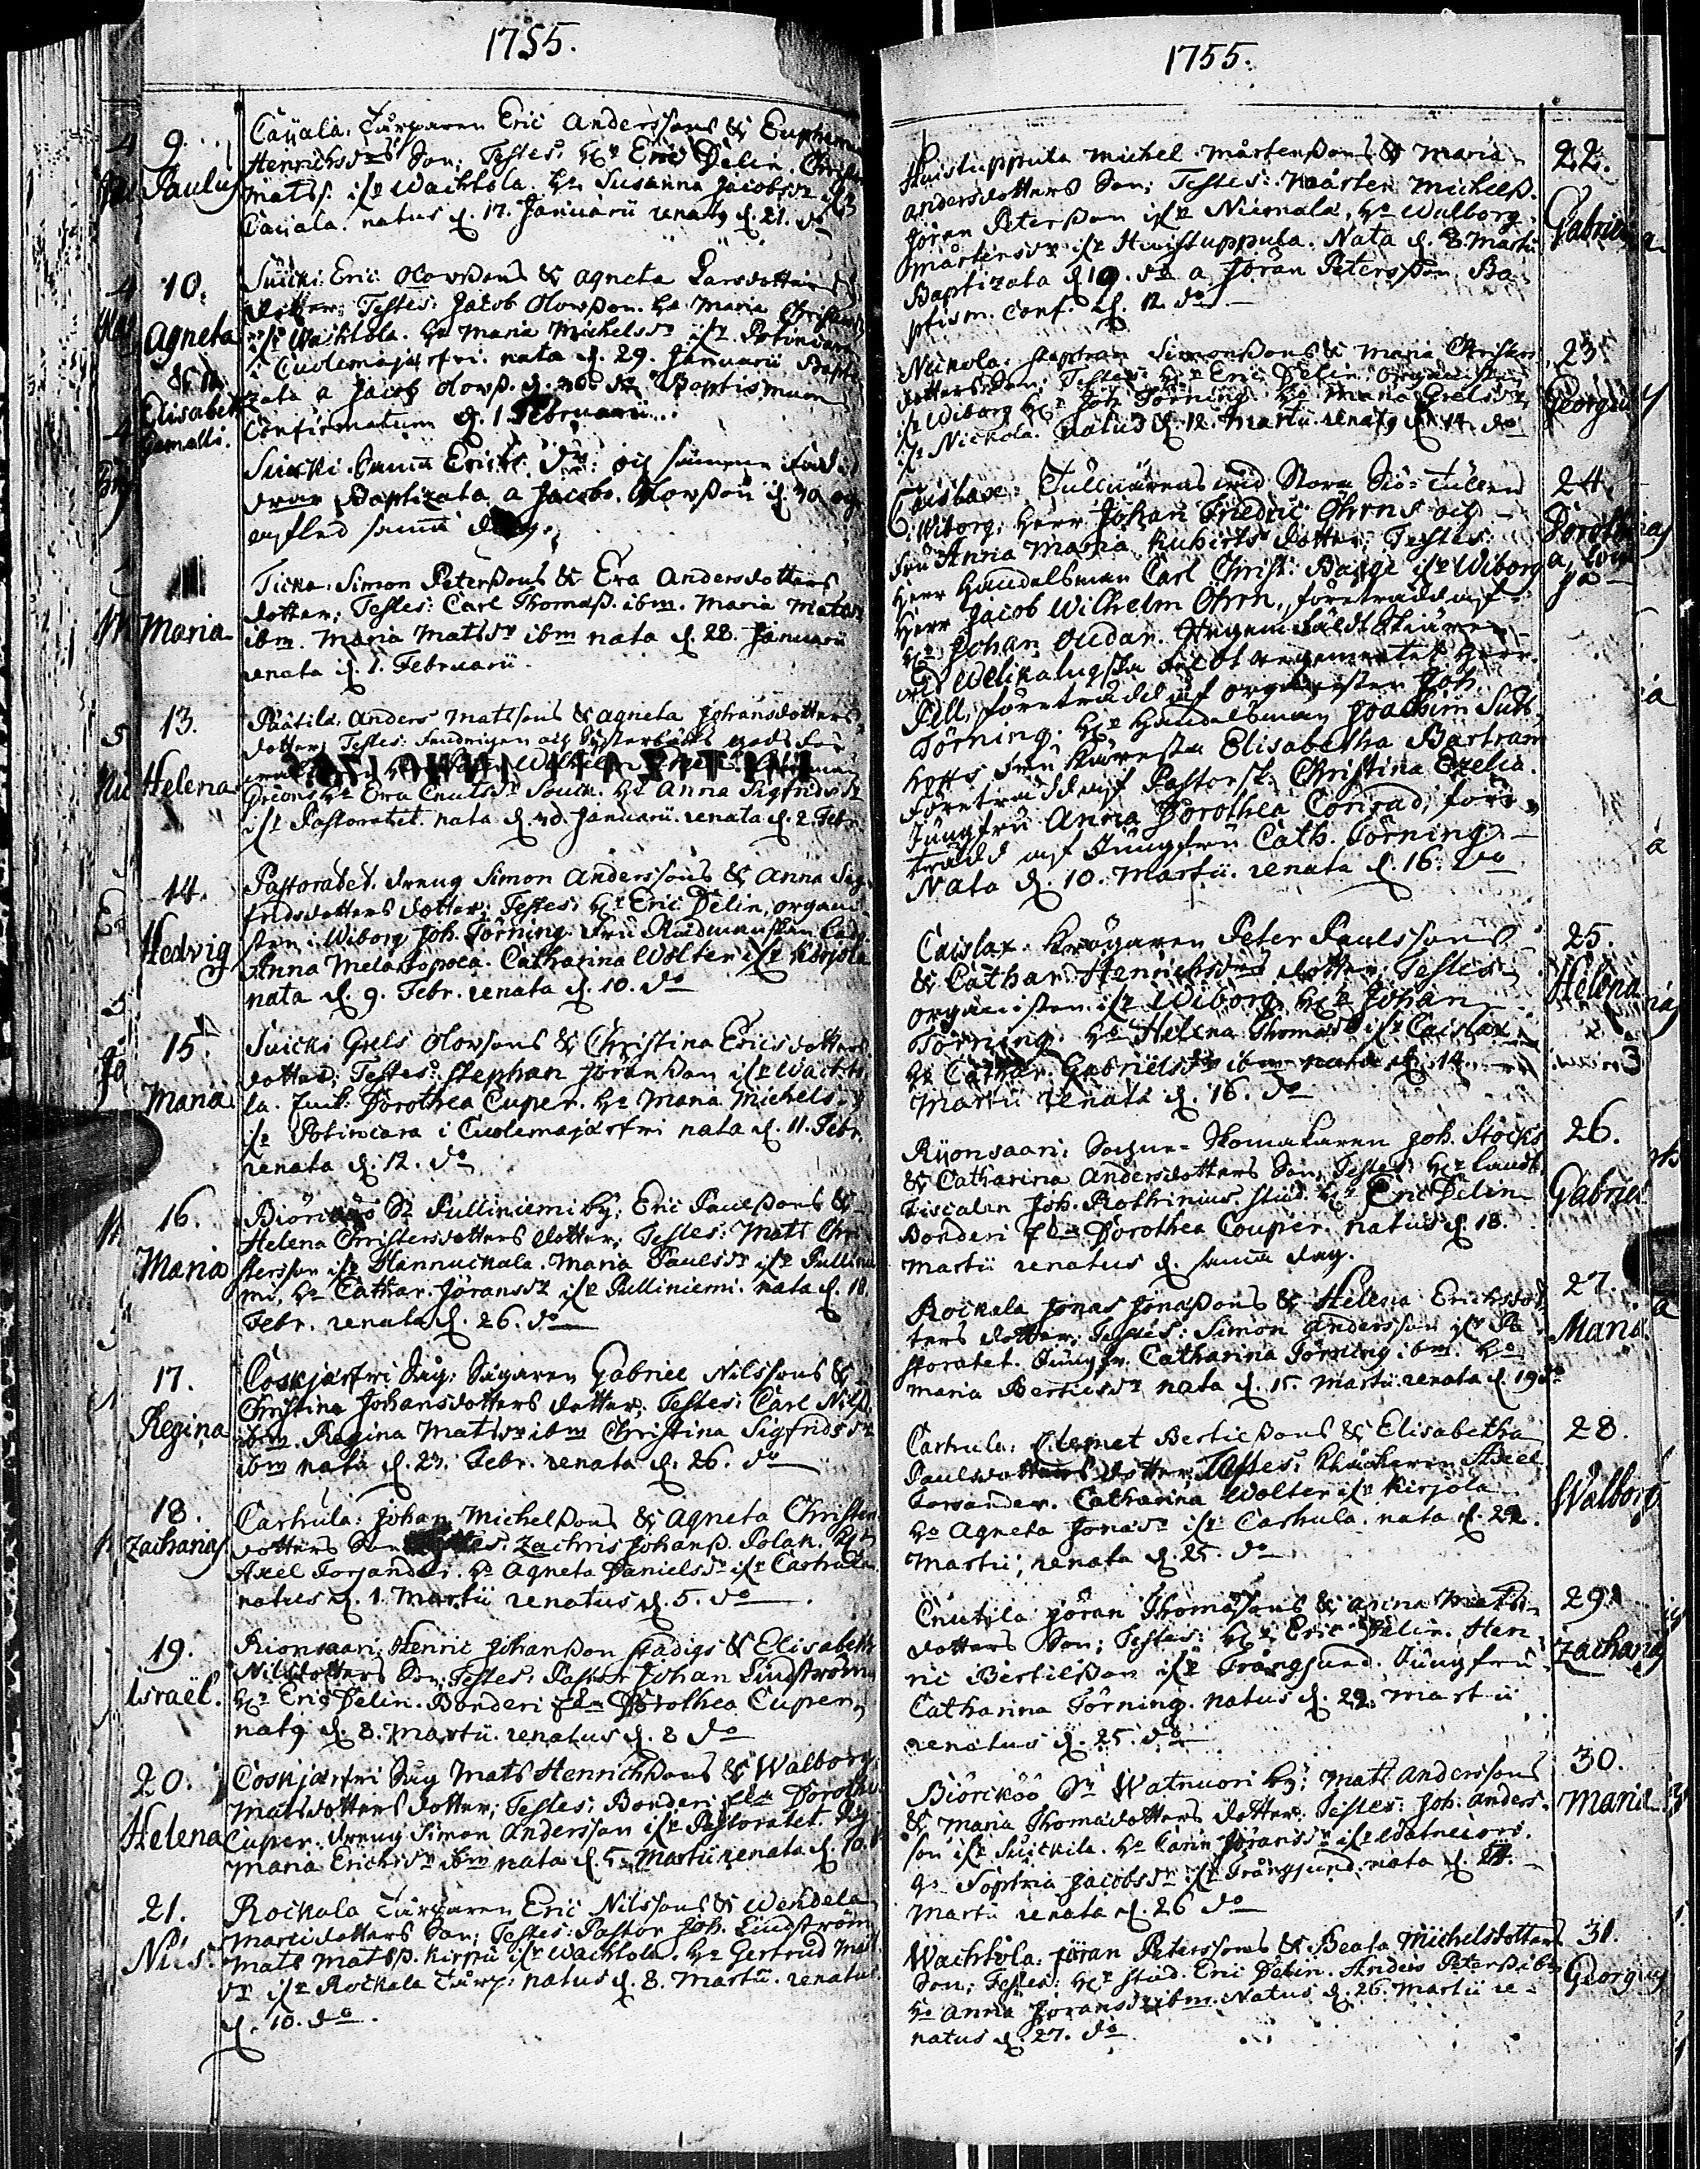 1755.
9.
Paulus
Caÿala. Eric Anderssons & Euphemia
Henrichsdrs Son; Testes: Hr Eric Delin. Christer
Mats. ifr Wachtola. Ha Susanna Jacobsdr ifr
Caÿala. natus d. 17. Januarii renatg d. 21. do
10.
Agneta
& 11.
Elisabet
Gemelli.
Suicki Eric Olovssons & Agneta Larsdotters
dotter; Testes: Jacob Olowsson. Ha Maria Christersdr
ifr Wachtola. Ha Maria Michelsdr ifr
i Cuolemajärfvi. nata d. 29. Januarii Bapti-
zata a Jacob Olowss. d. 30. do Baptismum
Confirmatum d. 1 Februarii.
Suicki samma Erics dr: och samma
Baptizata a Jacobo Olowsson d. 30 och
samma dag.
Maria
Ticka. Simon Peterssons & Eva Andersdotters
dotter; Testes: Carl Thomass. ibm. Maria Matsdr
ibm. Maria Matsdr ibm nata d. 28. Januarii
renata d. 1. Februarii.
13.
Helena
Pätilä. Anders Matssons & Agneta Johansdotters
dotter; Testes: Fendrigen och
Ha Eva Cnutsdr Ha Anna Sigfridsdr
ifr Pastoratet. nata d. 30. Januarii. renata d. 2. Febr.
14.
Hedvig
Pastoratet. dreng Simon Anderssons & Anna Sig-
fridsdotters dotter; Testes: Hr Eric Delin, organi-
sten i Wiborg Joh. Törning. Fru
Anna Melartopoea. Catharina Wolter ifr Kirjola
nata d. 9. Febr. renata d. 10. do
15.
Maria
Suicki Grels Olofsons & Christina Ericsdotters
dotter; Testes: Stephan Göransson ifr Wachto-
la. Dorothea Cuper. Ha Maria Michelsdr
ifr i Cuolemajärfvi nata d. 11. Febr.
renata d. 12. do
16.
Maria
Biörckö Sn Pulliniemi by; Eric Paulssons &
Helena Christersdotters dotter; Testes: Mats Chri-
stersson ifr Hannuckala. Maria Paulsdr ifr Pullinie-
mi, Ha Cathar. Göransdr ifr Pulliniemi. nata d. 18
Febr. renata d. 26. do
17.
Regina
Coskjärfvi Sag: Sågaren Gabriel Nilssons &
Christina Johansdotters dotter; Testes: Carl Nilss.
ibm. Regina Matsdr ibm Christina Sigfridsdr
ibm nata d. 23. Febr. renata d. 26. do
18.
Zacharias
Carhula: Johan Michelssons & Agneta Christers
dotters Son Testes: Zachris Johanss. Polak. Hr
Axel Forsander. Ha Agneta Danielsdr ifr Carhula
natus d. 1. Martii renatus d. 5. do
19.
Israël.
Rionsaari; Henric Johansson Stadigs & Elisabeth
Nilsdotters Son; Testes: Pastor Johan Lindström
Hr Eric Delin. Bonderi Dorothea Cuper,
natg d. 8. Martii. renatus d. 8 do
20.
Helena
Coskjärfvi Sag Mats Henrichssons & Walborg
Matsdotters dotter; Testes; Bonderi Dorothea
Cuper. dreng Simon Andersson ifr Pastoratet.
Maria Erichsdr ibm nata d. 5. Martii renata d. 10.
21.
Nils.
Rockala Eric Nilssons & Wendela
Marcidotters Son; Testes: Pastor Joh. Lindström
Mats Matss. ifr Wachtola. Ha Gertrud Mats
dr ifr Rockala natus d. 8. Martii. renatus
d. 10. do.
1755.
22.
Gabriel
Huistuppula Michel Mårtenssons & Maria
Andersdotters Son; Testes: Mårten Michelss.
Jöran Petersson ifr Niemala, Ha Walborg
Mårtensdr ifr Huistuppula. Nata d. 8. Martii
Baptizata d. 9. do a Jöran Petersson. Ba-
ptism. Conf. d. 12. do
23.
Georgius
Nickola. Simonssons & Maria Christers
dotters Son; Testes: Hr Eric Delin. organisten
ifr Wiborg Hr Joh. Törning. Ha Maria Grelsdr
ifr Nickola. Natus d. 12. Martii renatg d. 14. do
24.
Dorothe-
a, Lovi-
sa
Caislax: vid Stora Siö-tullen
i Wiborg, Herr Johan Friedric Öhrns och
Fru Anna Maria Kuhirts dotter; Testes:
Herr Handelsman Carl Christ: Bagge ifr Wiborg
Herr Jacob Wilhelm Öhrn, företrädd af
Hr Johan
vid Welikalugska regementet Herr
Pell, företrädd af organisten Joh.
Törning. Hr Handelsman Joachim Sut-
hoffs fru Käresta Elisabetha Bartram
företrädd af Pastorsk. Christina Exelia.
Jungfru Anna Dorothea Conrad, före-
trädd af Jungfru Cath. Törning.
Nata d. 10. Martii. renata d. 16. do
25.
Helena
Caislax. Krögaren Peter Paulssons
& Cathar. Henrichsdrs dotter; Testes:
organisten ifr Wiborg Hr Johan
Törning. Ha Helena Thomasdr ifr Caislax
Ha Cathar. Gabrielsdr ibm nata d. 14.
Martii renata d. 16. do
26.
Gabriel
Rÿonsaari; Sochne-Skomakaren Joh. Stocks
& Catharina Andersdotters Son; Testes: Hr Landt-
Fiscalen Joh. Rothrinius. Stud. Hr Eric Delin
Bonderi Dorothea Couper. natus d. 18.
Martii renatus d. samma dag.
27.
Maria.
Rockala Jonas Jonassons & Helena Erichsdot-
ters dotter; Testes: Simon Andersson ifr Pa-
storatet. Jungfr. Catharina Törning ibm. Ha
Maria Bertilsdr nata d. 15. Martii renata d. 19 do
28.
Walborg
Carhula: Clemet Bertilssons & Elisabetha
Paulsdotters dotter; Testes: Axel
Forsander. Catharina Wolter ifr Kirjola
Ha Agneta Jonasdr ifr Carhula. nata d. 22.
Martii; renata d. 25. do
29.
Zacharias
Cnutila Jöran Thomassons & Anna Mats-
dotters Son; Testes: Hr Eric Delin. Hen-
ric Bertilsson ifr Trångsund. Jungfru
Catharina Törning. natus d. 22. Martii
renatus d. 25. do
30.
Maria
Biörcköö Sn Watnuori by; Mats Anderssons
& Maria Thomasdotters dotter. Testes: Joh. Anders-
son ifr Suickila. Ha Carin Göransdr ifr Watnuori.
Ha Sophia Jacobsdr ifr Trångsund. nata d. 24.
Martii renata d. 26 do
31.
Georgius
Wachtola. Jöran Peterssons & Beata Michelsdotters
Son; Testes: Hr Stud. Eric Delin. Anders Peterss. ibm
Ha Anna Göransdr ibm. Natus d. 26. Martii re-
natus d. 27. do